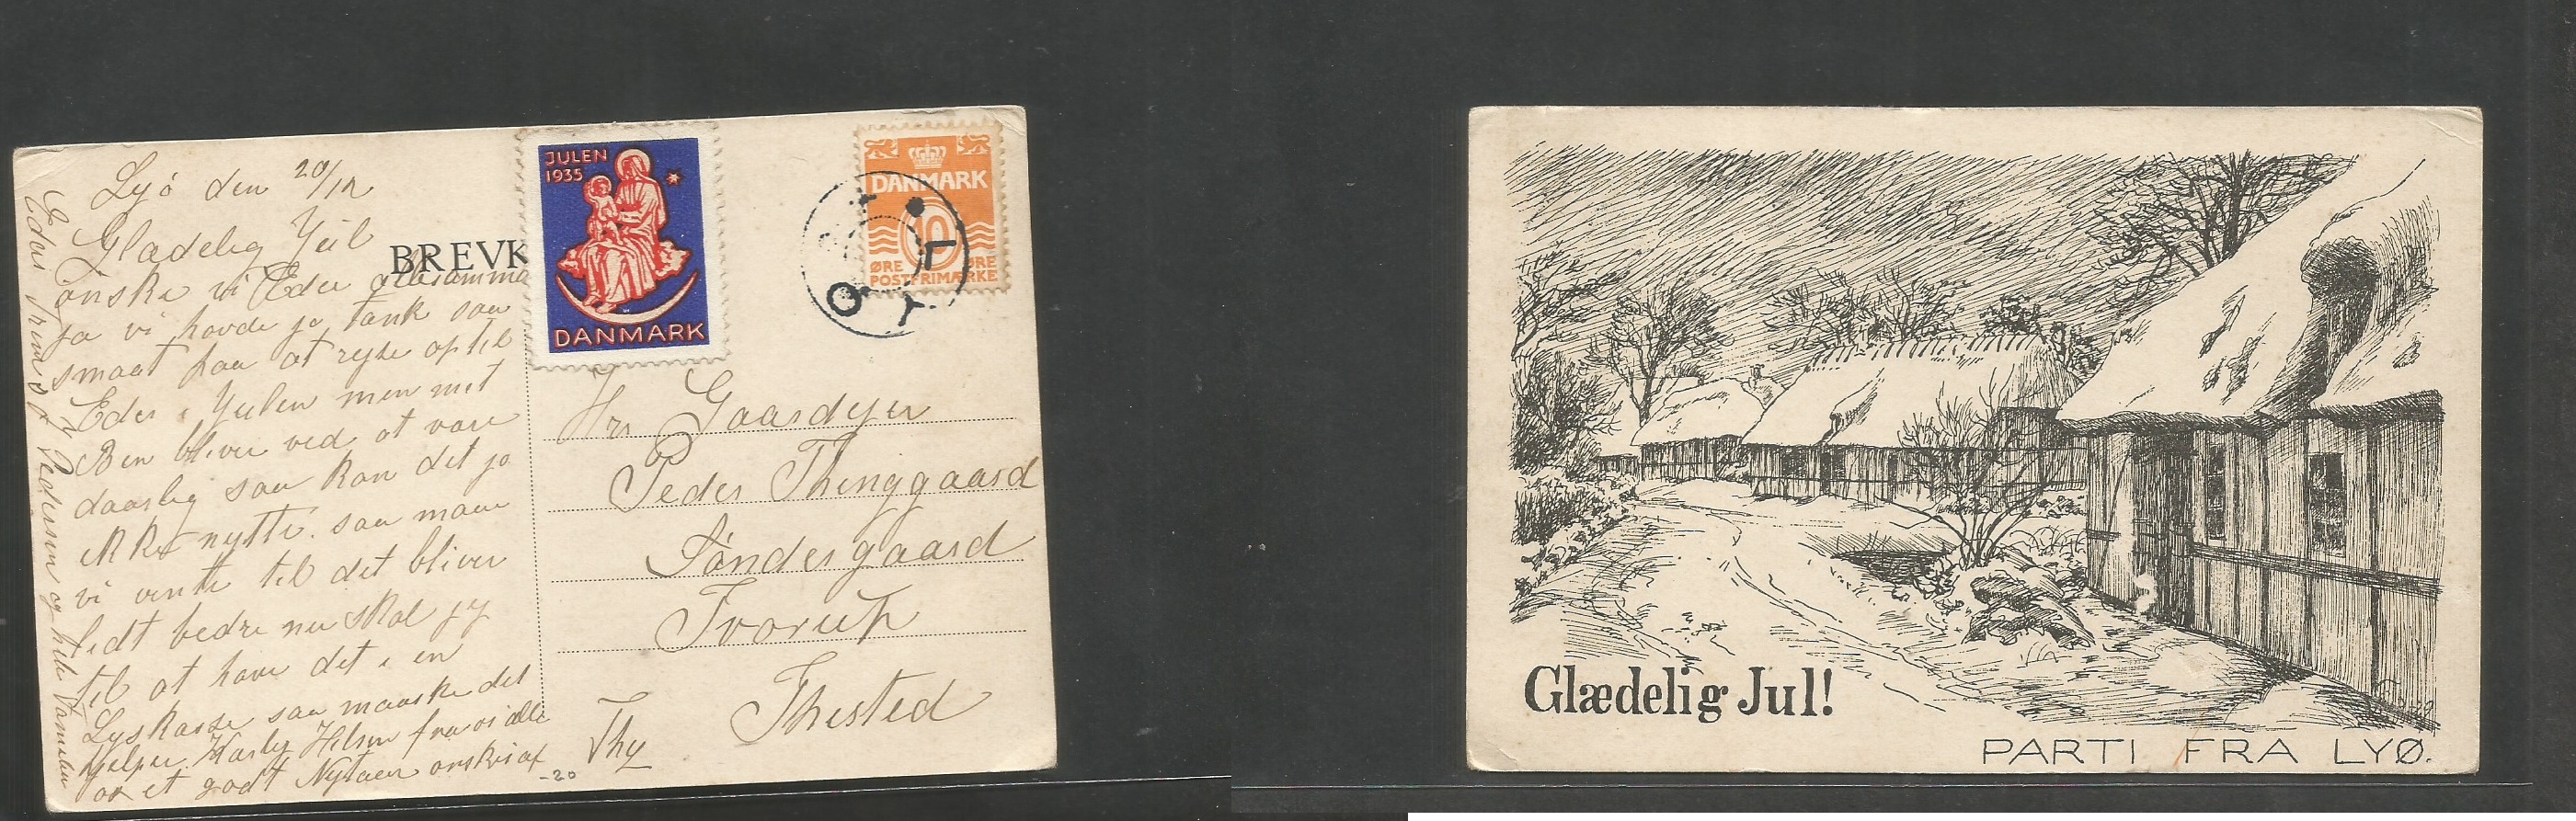 Lyö den 20/12
Glædelig Jul
BREVK
önske vi Eder allesamme
ja vi havde jo tænk saa
smaat paa at rejse op til
Eder i Julen men mit
Ben bliver ved at være
daarlig saa kan det jo
ikke nytte. saa maa
vi vente til det bliver
lidt bedre nu skal jeg
til at have det i en
Lyskasse saa maaske det
hjelper. Kærlig Hilsen fra os alle
og et godt Nytaar önskes af
Eders
Pedersen og hele Familien
JULEN
1935
DANMARK
DANMARK
10
ØRE ØRE
POSTFRIMÆRKE
LYØ
Hr Gaardejer
Peder Thinggaard
Söndergaard
Tvorup
Thisted
Thy
-20
Glædelig Jul!
PARTI FRA LYØ.